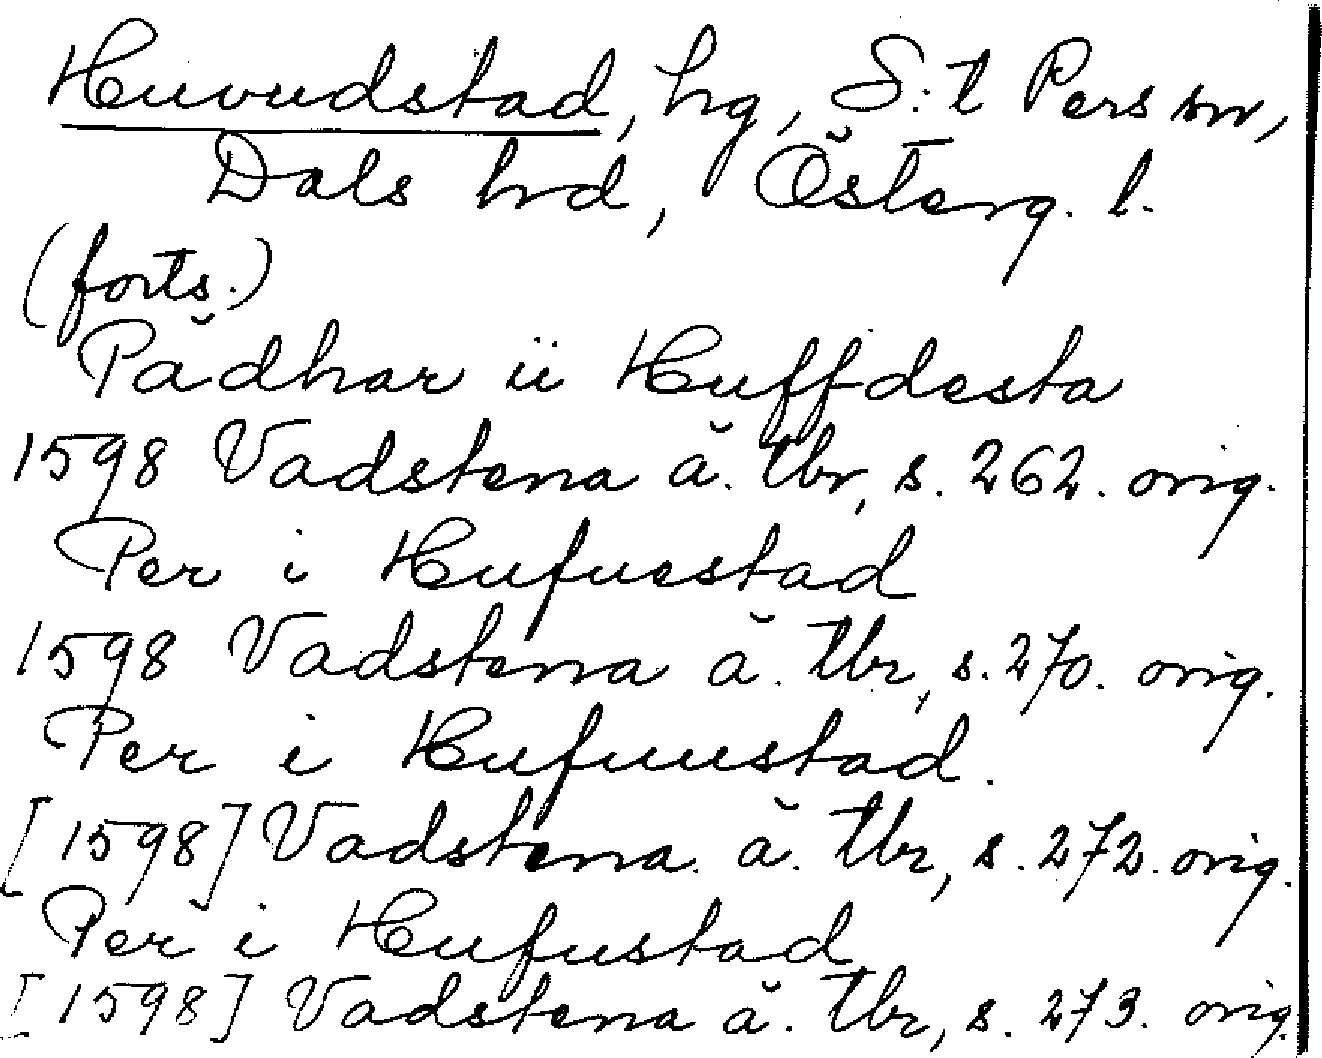 Huvudstad, hg, S:t Pers sn,
Dals hrd, Österg. l.
(forts.)
Pädhar ii Huffdesta
1598 Vadstena ä. tbr, s. 262. orig.
Per i Hufuestad
1598 Vadstena ä. tbr, s. 270. orig.
Per i Hufuustad.
[1598] Vadstena ä. tbr, s. 272. orig.
Per i Hufustad
[1598] Vadstena ä. tbr, s. 273. orig.